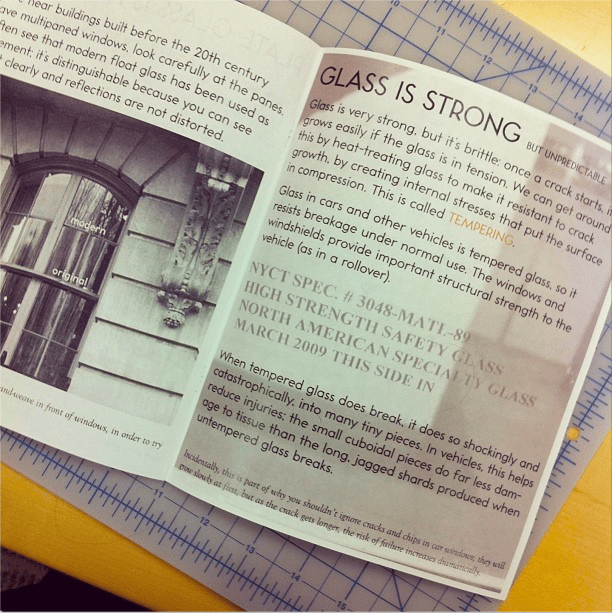 near buildings built before the 20th century
ave multipaned windows, look carefully at the panes.
ften see that modern float glass has been used as
ement; it's distinguishable because you can see
clearly and reflections are not distorted.
modern
original
and weave in front of windows, in order to try
GLASS IS STRONG BUT UNPREDICTABLE
Glass is very strong, but it's brittle: once a crack starts, it
grows easily if the glass is in tension. We can get around
this by heat-treating glass to make it resistant to crack
growth, by creating internal stresses that put the surface
in compression. This is called TEMPERING.
Glass in cars and other vehicles is tempered glass, so it
resists breakage under normal use. The windows and
windshields provide important structural strength to the
vehicle (as in a rollover).
NYCT SPEC. # 3048-MATL-89
HIGH STRENGTH SAFETY GLASS
NORTH AMERICAN SPECIALTY GLASS
MARCH 2009 THIS SIDE IN
When tempered glass does break, it does so shockingly and
catastrophically, into many tiny pieces. In vehicles, this helps
reduce injuries: the small cuboidal pieces do far less dam-
age to tissue than the long, jagged shards produced when
untempered glass breaks.
Incidentally, this is part of why you shouldn't ignore cracks and chips in car windows; they will
grow slowly at first, but as the crack gets longer, the risk of failure increases dramatically.
11
12
13
14
11
12
13
14
15